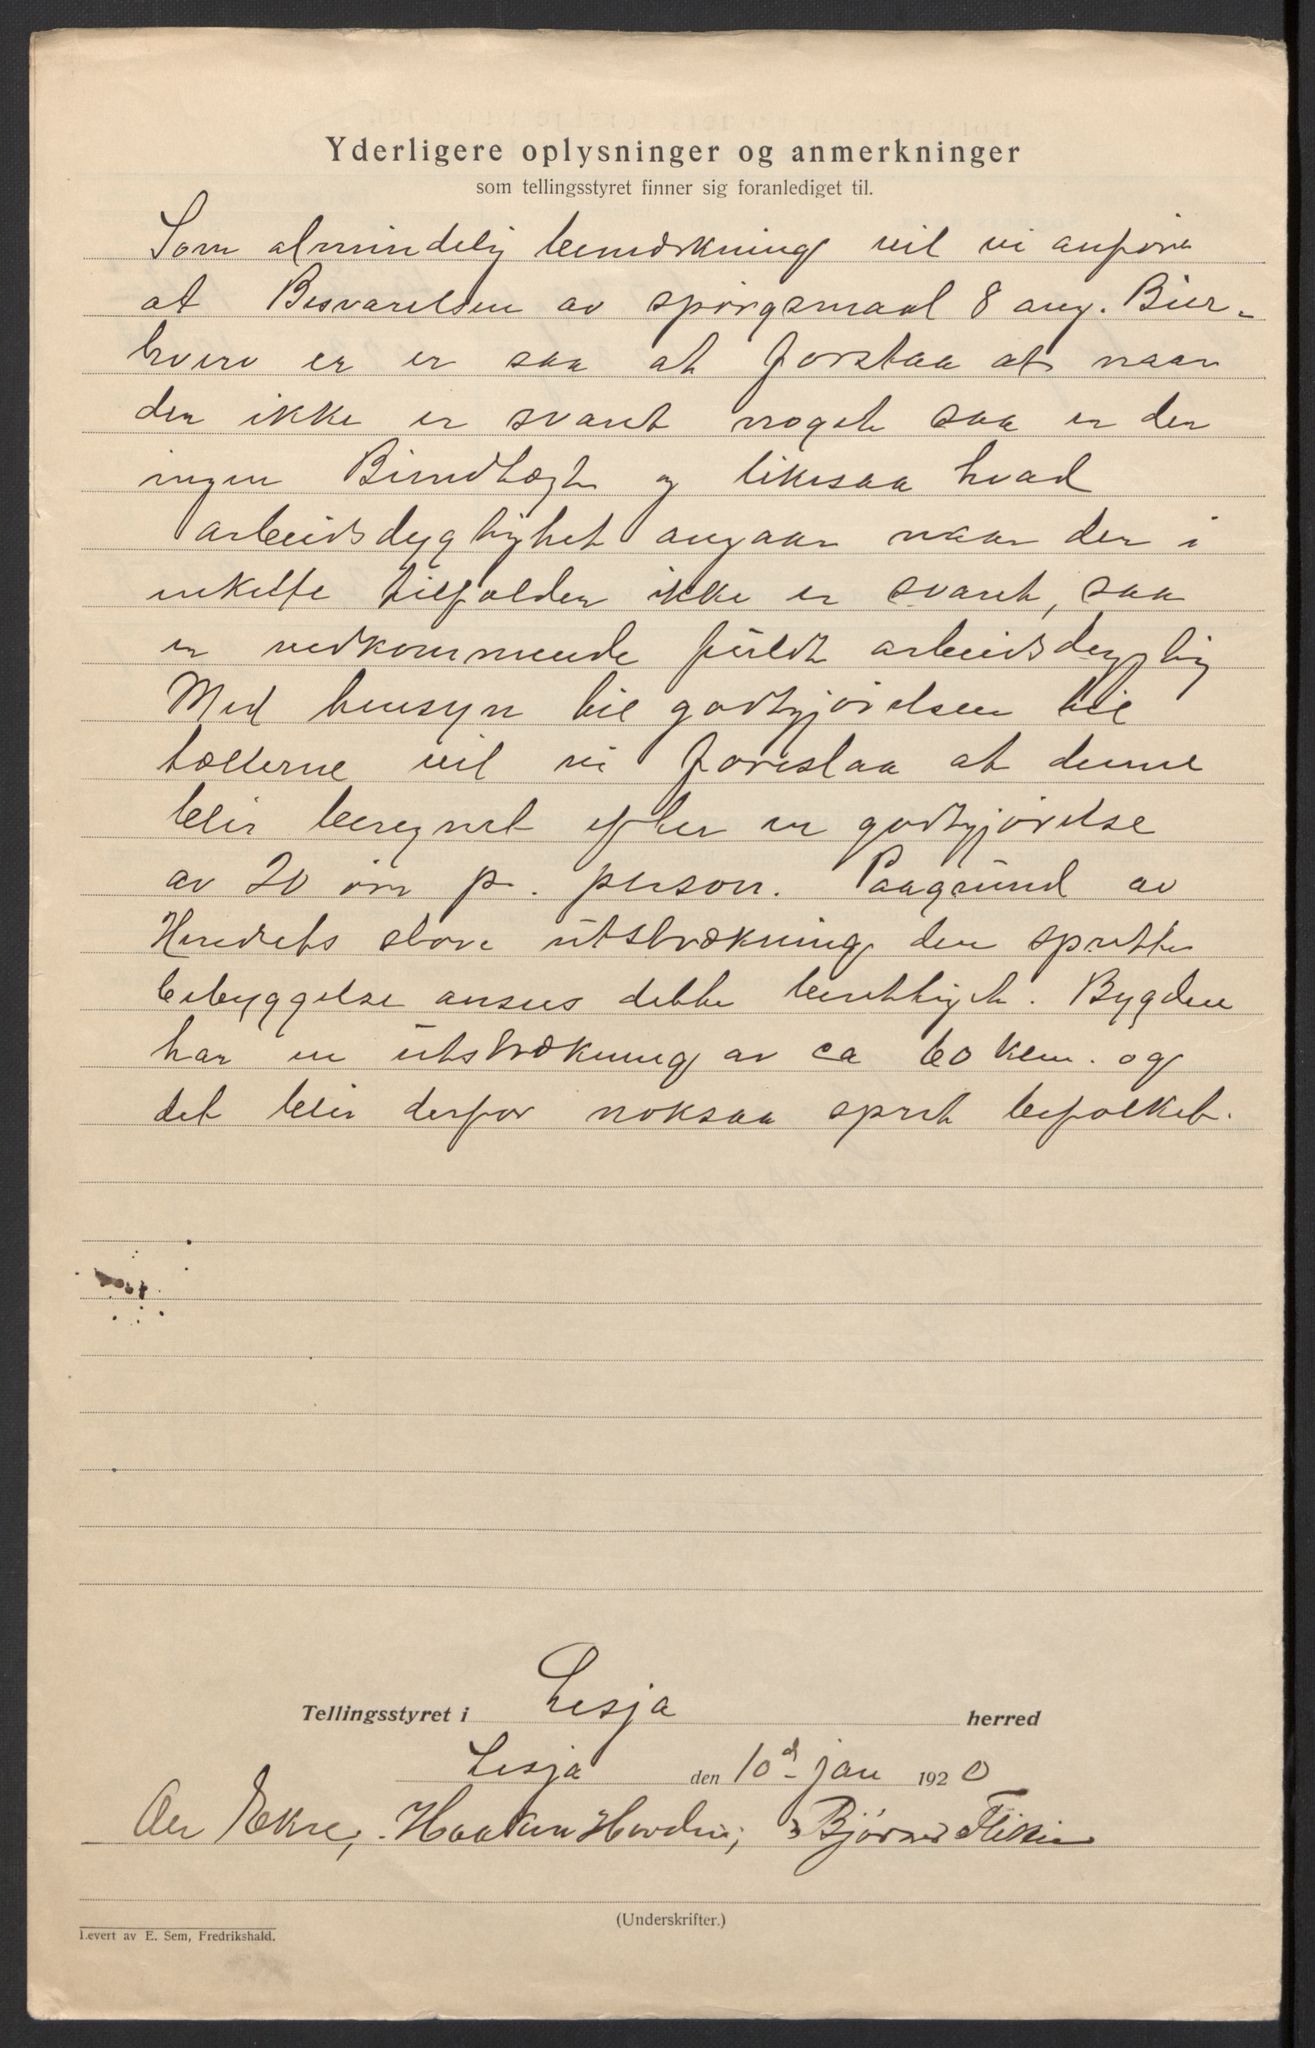 Yderligere oplysninger og anmerkninger
som tellingsstyret finner sig foranlediget til.
Som almindelig bemærkning vil vi anføre
at Besvarelsen av spørgsmaal 8 ang. Bier-
hverv er er saa at forstaa at naar
der ikke er svaret noget saa er der
ingen Biindtægt og likesaa hvad
arbeidsdygtighet angaar naar der i
enkelte tilfælder ikke er svaret, saa
er vedkommende fuldt arbeidsdygtig
Med hensyn til godtgjørelsen til
tællerne vil vi foreslaa at denne
blir beregnet efter en godtgjørelse
av 20 øre pr. person. Paagrund av
Herredets store utstrækning den sprette
bebyggelse ansees dette berettiget. Bygden
har en utstrækning av ca 60 klm. og
det blir derfor noksaa spret befolket.
Tellingsstyret i Lesja herred
Lesja den 10d jan 1920
Ekre, Haakon Bjørner
(Underskrifter.)
Levert av E. Sem, Fredrikshald.